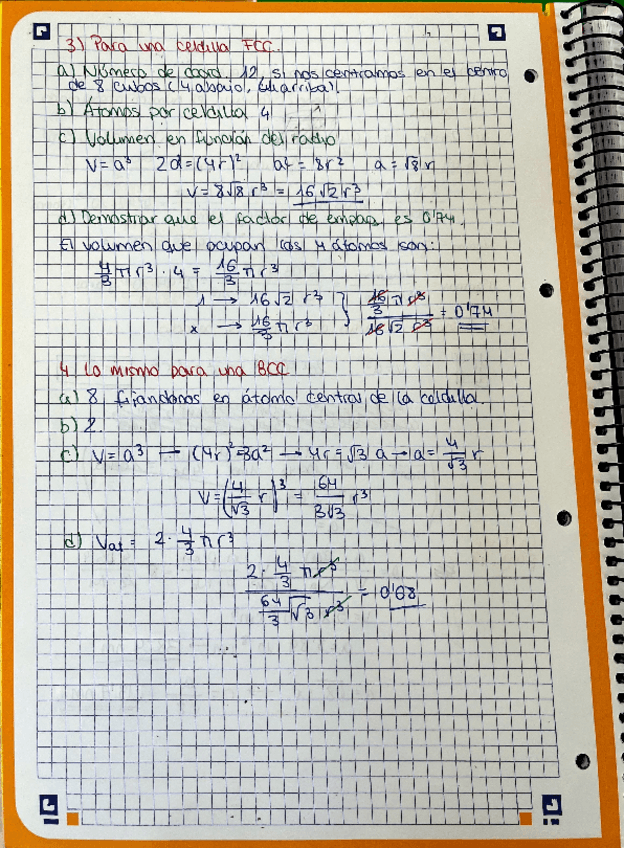 3) Para una celdilla FCC.
a) Número de coord. 12, si nos centramos en el centro
de 8 cubos (4 abajo, 4 arriba).
b) Átomos por celdilla 4
c) Volumen en función del radio
V=a³ 2a²=(4r)² a²=8r² a=√8 r
V=8√8 r³ = 16√2 r³
d) Demostrar que el factor de empaq. es 0'74.
El volumen que ocupan los 4 átomos son:
4/3 π r³ · 4 = 16/3 π r³
1 → 16√2 r³
x → 16/3 π r³ } 16/3 π r³ / 16√2 r³ = 0'74
4 Lo mismo para una BCC
a) 8, fijandonos en átomo central de la celdilla.
b) 2.
c) V=a³ → (4r)²=3a² → 4r=√3 a → a= 4/√3 r
V=(4/√3 r)³ = 64/3√3 r³
d) Vat = 2· 4/3 π r³
2· 4/3 π r³ / 64/3 √3 r³ = 0'68